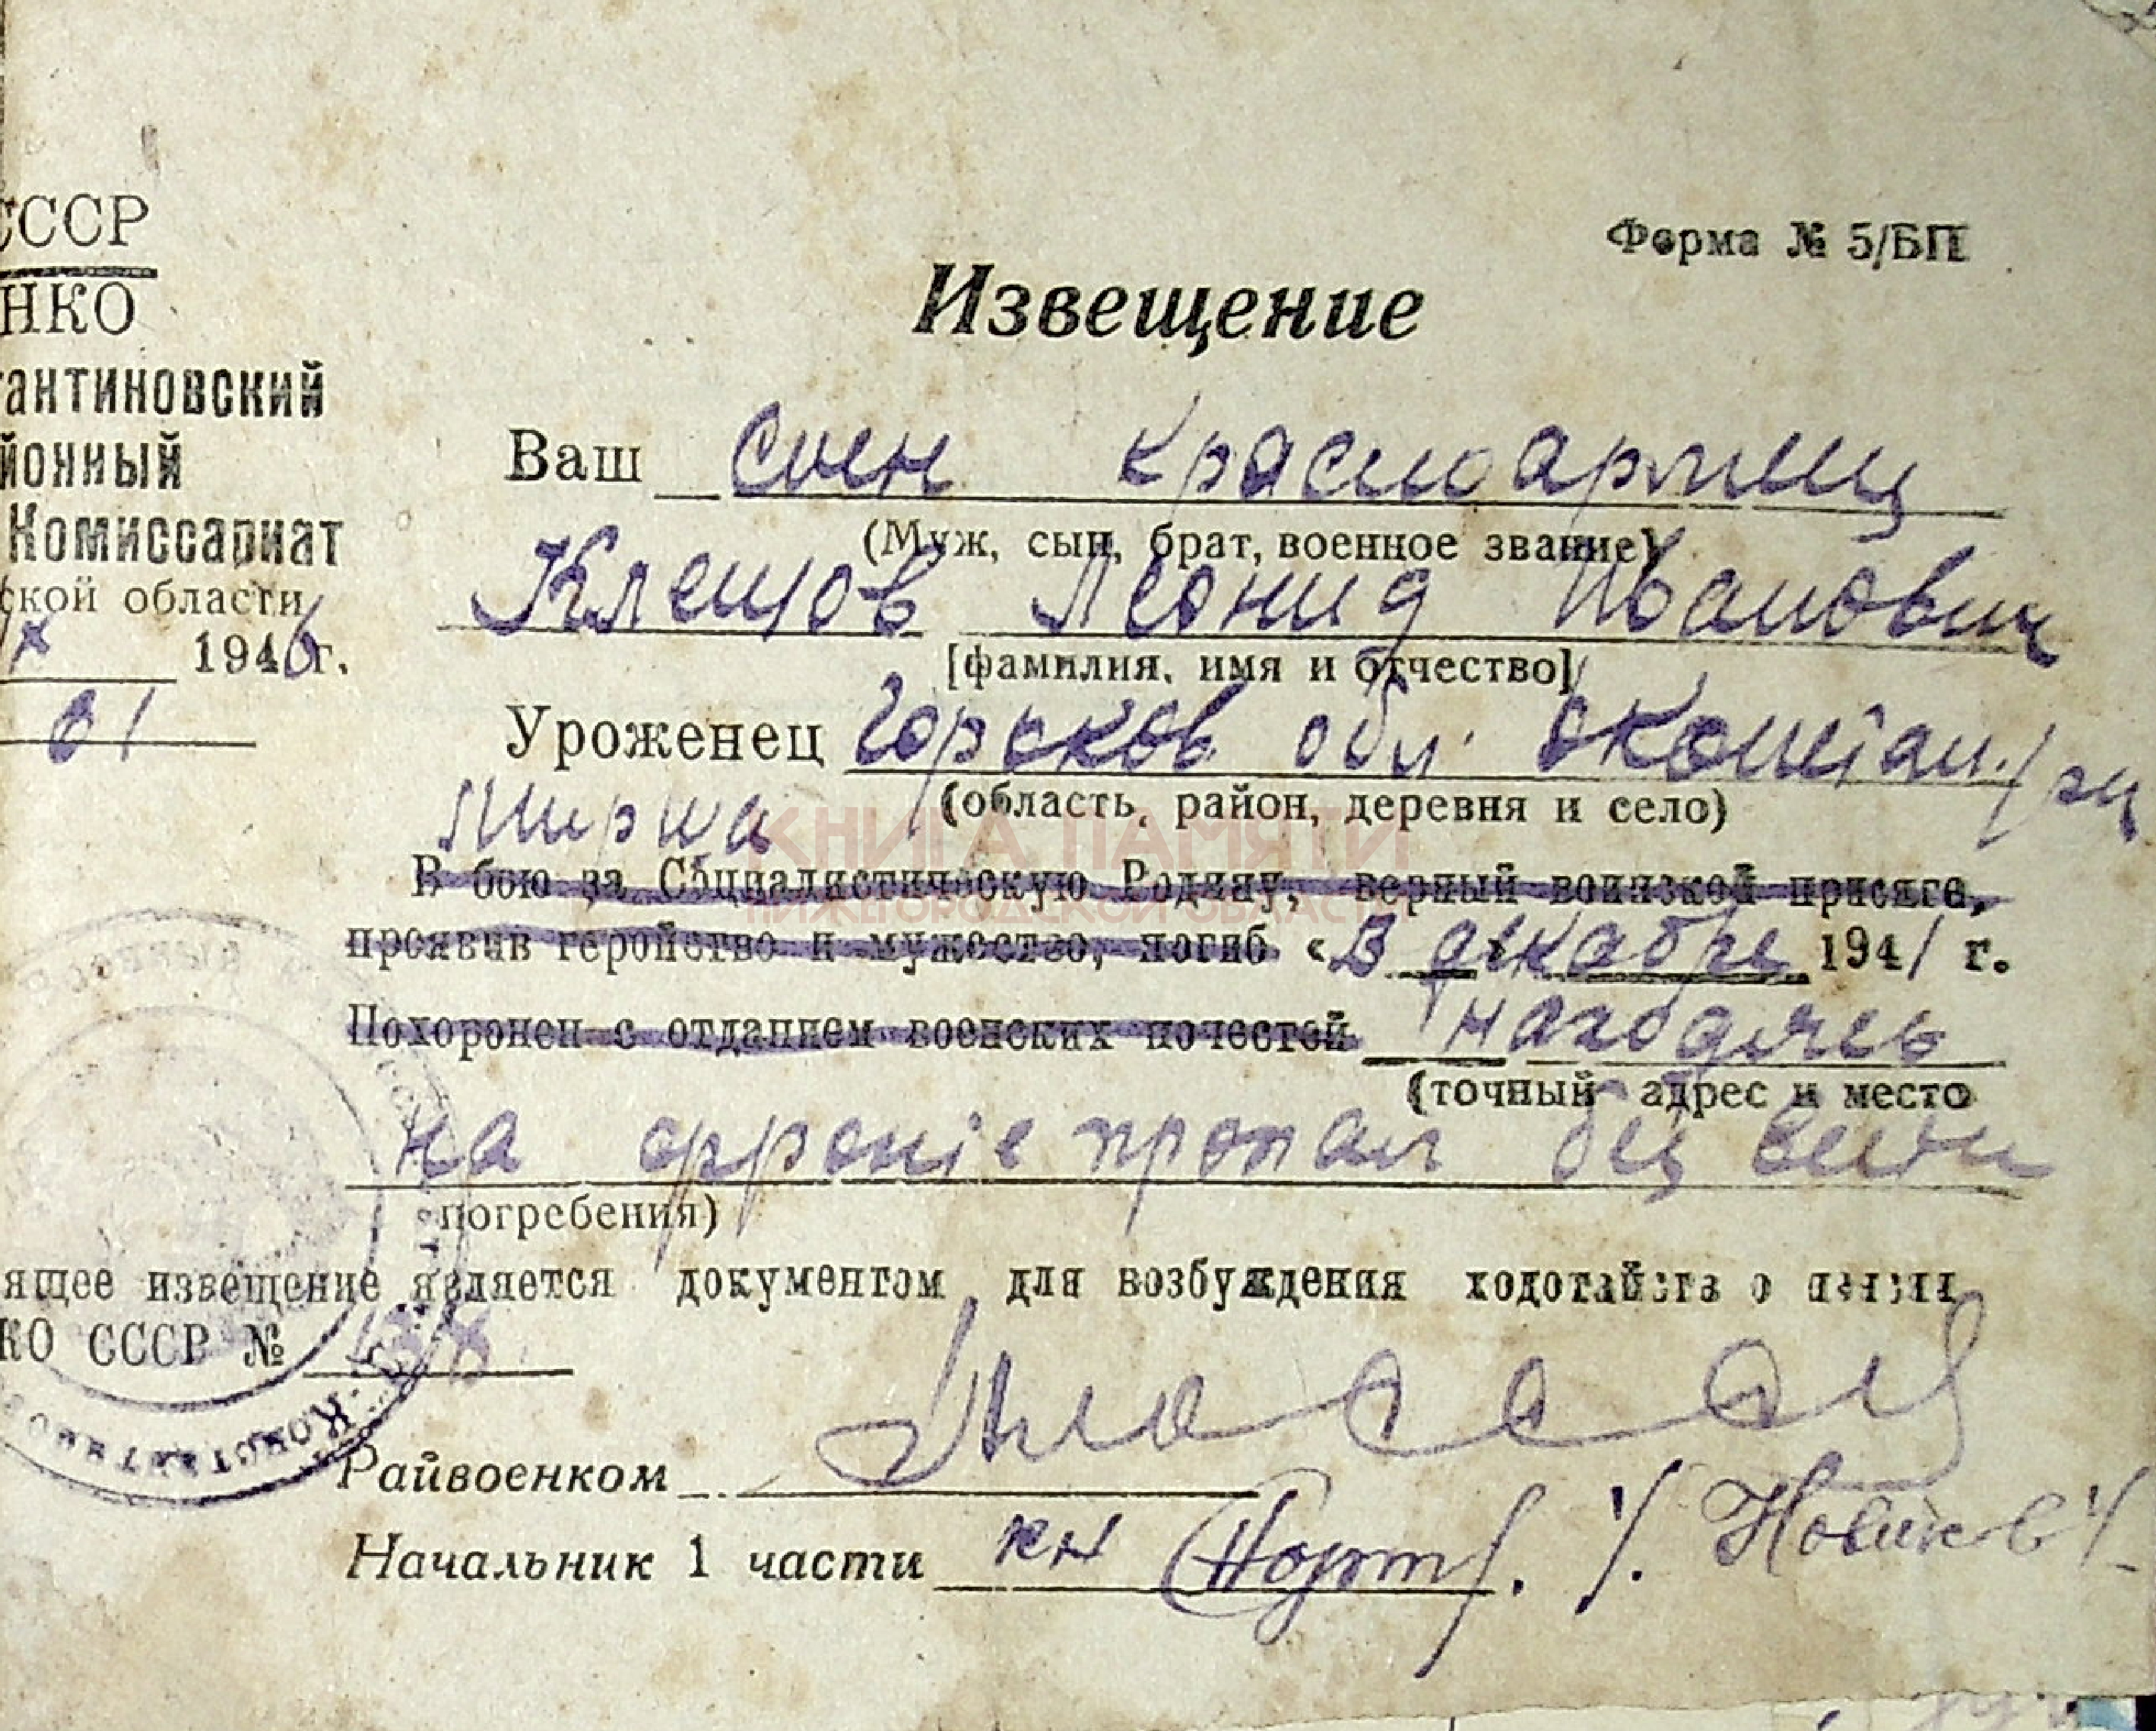 СССР
Форма № 5/БП
НКО
Извещение
антиновский
йонный
Ваш сын красноармеец
Комиссариат
(Муж, сын, брат, военное звание)
ской области
Клещов Леонид Иванович
1946 г.
[фамилия, имя и отчество]
61
Уроженец Горьков обл.
(область, район, деревня и село)
КНИГА ПАМЯТИ
НИЖЕГОРОДСКОЙ ОБЛАСТИ
В бою за Социалистическую Родину, верный воинской присяге,
проявив геройство и мужество, погиб «В декабре 1941 г.
Похоронен с отданием военских почестей находясь
(точный адрес и место
на фронте пропал без вести
погребения)
ящее извещение является документом для возбуждения ходотайства о пенсии
КО СССР №
Райвоенком
Начальник 1 части кн /. Новиков /